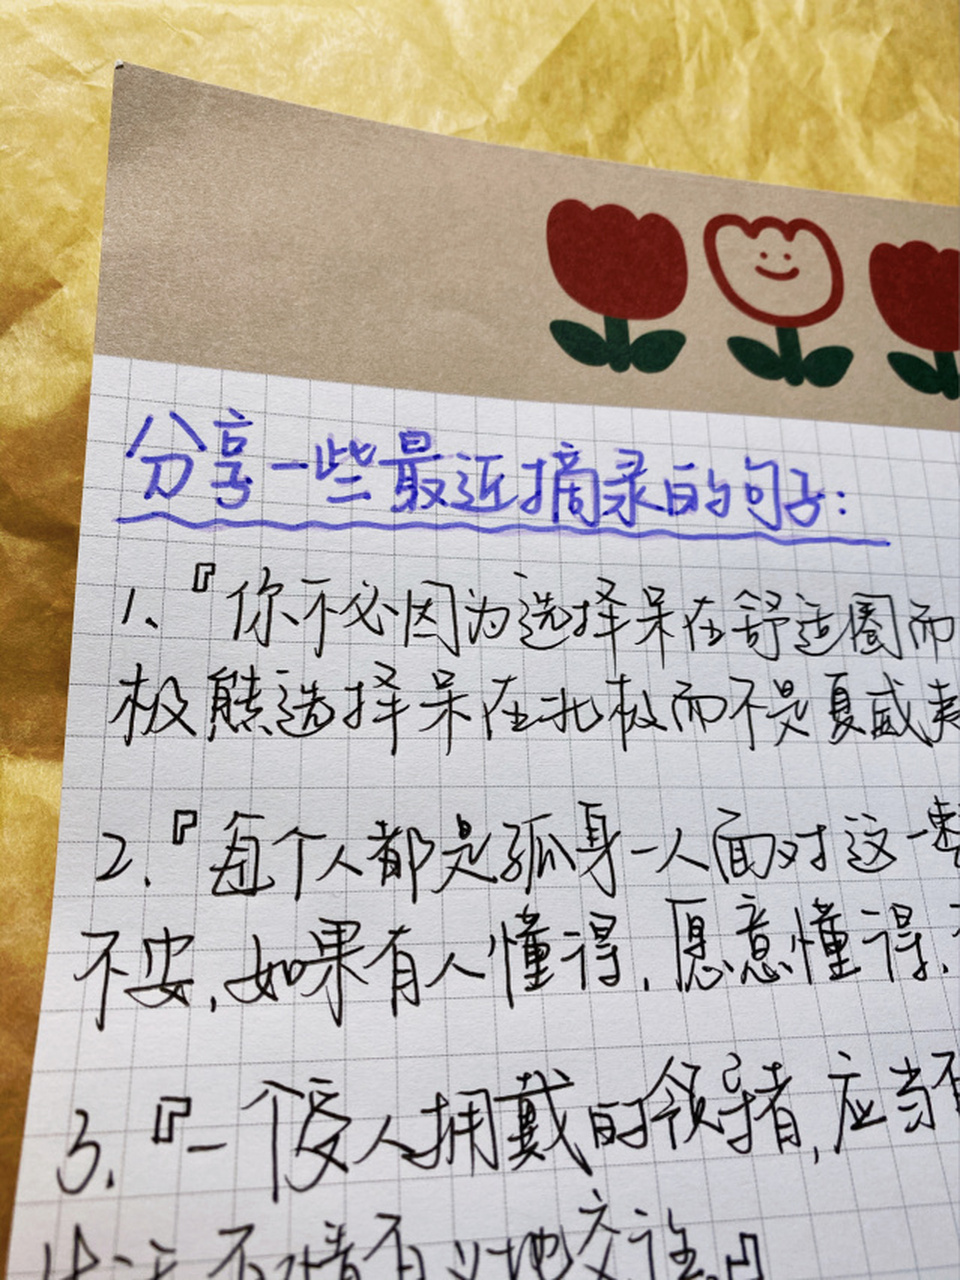 分享一些最近摘录的句子:
1、『你不必因为选择呆在舒适圈而
极熊选择呆在北极而不是夏威夷
2.『每个人都是孤身一人面对这一整
不安,如果有人懂得,愿意懂得,
3.『一个受人拥戴的领导者,应当有
不情不义地交往。』